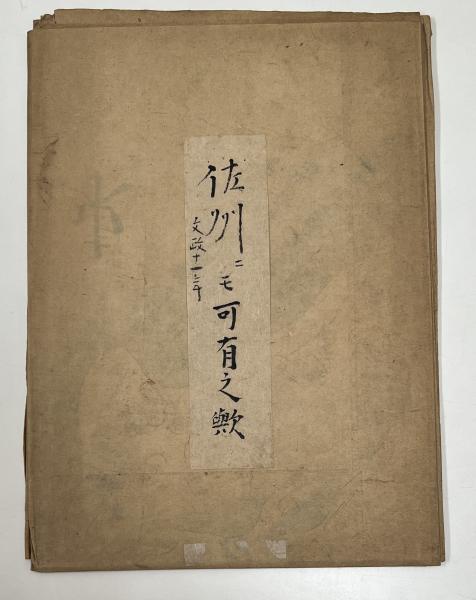 佐州ニモ可有之歟
文政十一年